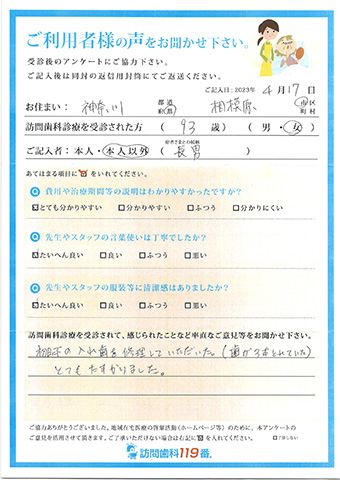 ご利用者様の声をお聞かせ下さい。
受診後のアンケートにご協力下さい。
ご記入後は同封の返信用封筒にてご返送ください。
ご記入日:2023年 4月17日
お住まい: 神奈川 都道府県 相模原 市区町村
訪問歯科診療を受診された方 ( 93 歳) ( 男・女 )
ご記入者:本人・本人以外 ( 患者さまとの続柄 長男 )
あてはまる項目に☑を入れてください。
Q 費用や治療期間等の説明はわかりやすかったですか?
☑とても分かりやすい □分かりやすい □ふつう □分かりにくい
Q 先生やスタッフの言葉使いは丁寧でしたか?
☑たいへん良い □良い □ふつう □悪い
Q 先生やスタッフの服装等に清潔感はありましたか?
☑たいへん良い □良い □ふつう □悪い
訪問歯科診療を受診されて、感じられたことなど率直なご意見等をお聞かせ下さい。
の入れ歯を修理していただいた。(歯が3本とれていた)
とてもたすかりました。
ご協力ありがとうございました。地域在宅医療の啓蒙活動(ホームページ等)のために、本アンケートの
ご意見を活用させて頂きます。ご了承いただけない場合は右記に☑を入れてください。 □了承しない
訪問歯科119番。